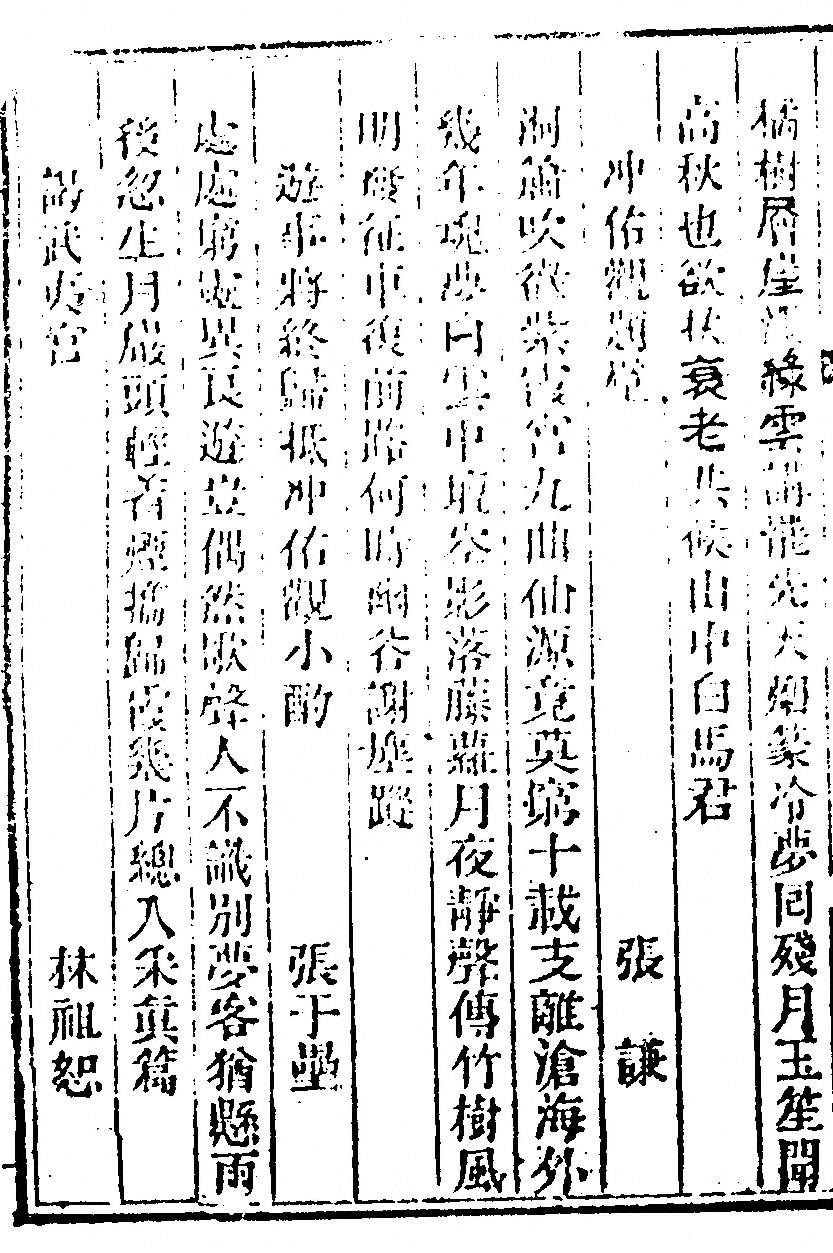 橘樹層崖綠雲講龍先天夠篆冷夢回殘月玉笙聞
高秋也欲扶衰老共候山中白馬君
冲佑觀題壁
張 謙
洞簫吹徹紫霞宮九曲仙源竟莫窮十載支離滄海外
幾年魂夢白雲中壇空影落藤蘿月夜靜聲傳竹樹風
明發征車復前路何時幽谷謝塵蹤
遊事將終歸抵冲佑觀小酌
張于壘
處處窮處異良遊豈偶然歌聲人不識別夢客猶懸雨
後忽生月嚴頭輕着煙携歸霞幾片總入采真篇
謁武夷宮
林祖恕